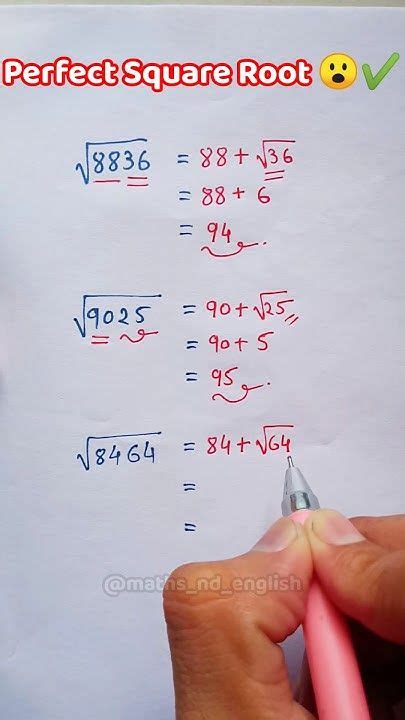 Perfect Square Root 😮✔
√8836 = 88 + √36
= 88 + 6
= 94.
√9025 = 90 + √25
= 90 + 5
= 95.
√8464 = 84 + √64
=
=
@maths_nd_english